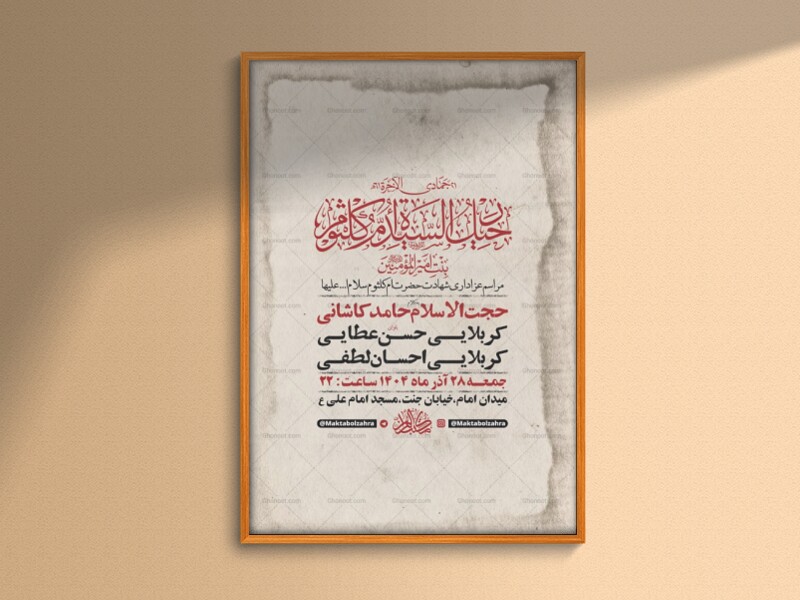 ٢١ جمادی الآخرة
رحیل السیدة أم کلثوم
بنت امیرالمؤمنین
مراسم عزاداری شهادت حضرت ام کلثوم سلام ا... علیها
حجت الاسلام حامد کاشانی
کربلایی حسن عطایی
کربلایی احسان لطفی
جمعه ۲۸ آذر ماه ۱۴۰۴ ساعت: ۲۲
میدان امام، خیابان جنت، مسجد امام علی ع
@Maktabolzahra @Maktabolzahra